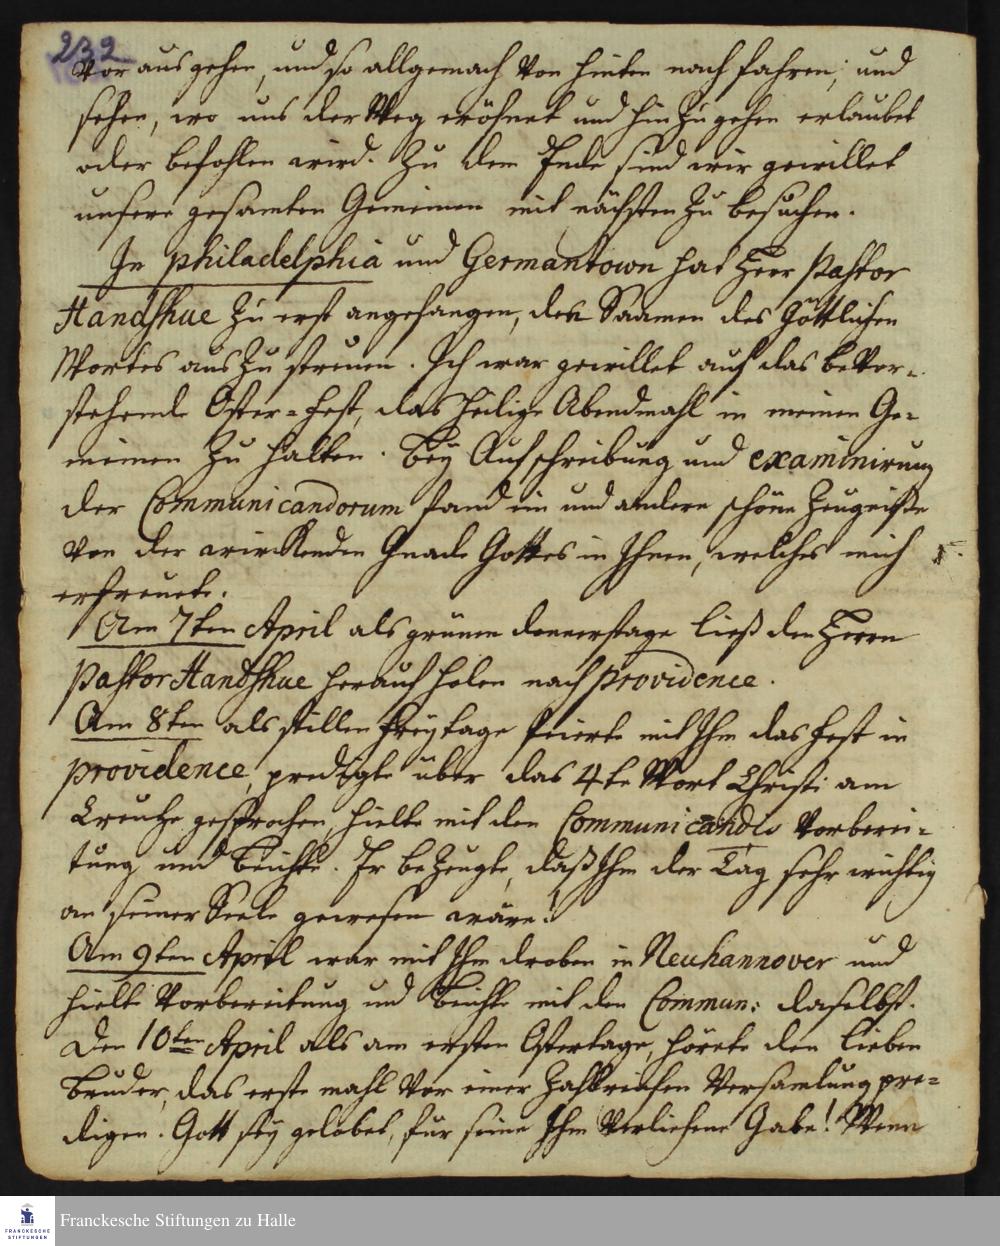 232
vor aus gehen, und so allgemach von hinten nach fahren, und
sehen, wo uns der Weg eröhnet und hin zu gehen erlaubet
oder befohlen wird. Zu dem Ende sind wir gewillet
unsere gesamten Gemeinen mit nächsten zu besuchen.
In philadelphia und Germantown hat Herr Pastor
Handshue zu erst angefangen, den Saamen des Göttlichen
Wortes aus zu streuen. Ich war gewillet auf das bevor-
stehende Oster-fest, das heilige Abendmahl in meinen Ge-
meinen zu halten. Bey Aufschreibung und examinirung
der Communicandorum fand ein und andere schöne Zeugniße
von der wirckenden Gnade Gottes in Ihnen, welches mich
erfreuete.
Am 7ten April als grünen donnerstage ließ den Herrn
Pastor Handshue herauf holen nach providence.
Am 8ten als stillen freytage feierte mit Ihm das fest in
providence, predigte über das 4te Wort Christi am
Creutze gesprochen, hielte mit den Communicandis Vorberei-
tung und Beichte. Er bezeugte, daß Ihm der Tag sehr wichtig
an seiner Seele gewesen wäre!
Am 9ten April war mit Ihm droben in Neuhannover und
hielte Vorbereitung und Beichte mit den Commun: daselbst.
Den 10ten April als am ersten Ostertage, hörete den lieben
Bruder, das erste mahl vor einer Zahlreichen Versamlung pre-
digen. Gott sey gelobet, für seine Ihm verliehene Gabe! Wenn
Franckesche Stiftungen zu Halle
FRANCKESCHE
STIFTUNGEN